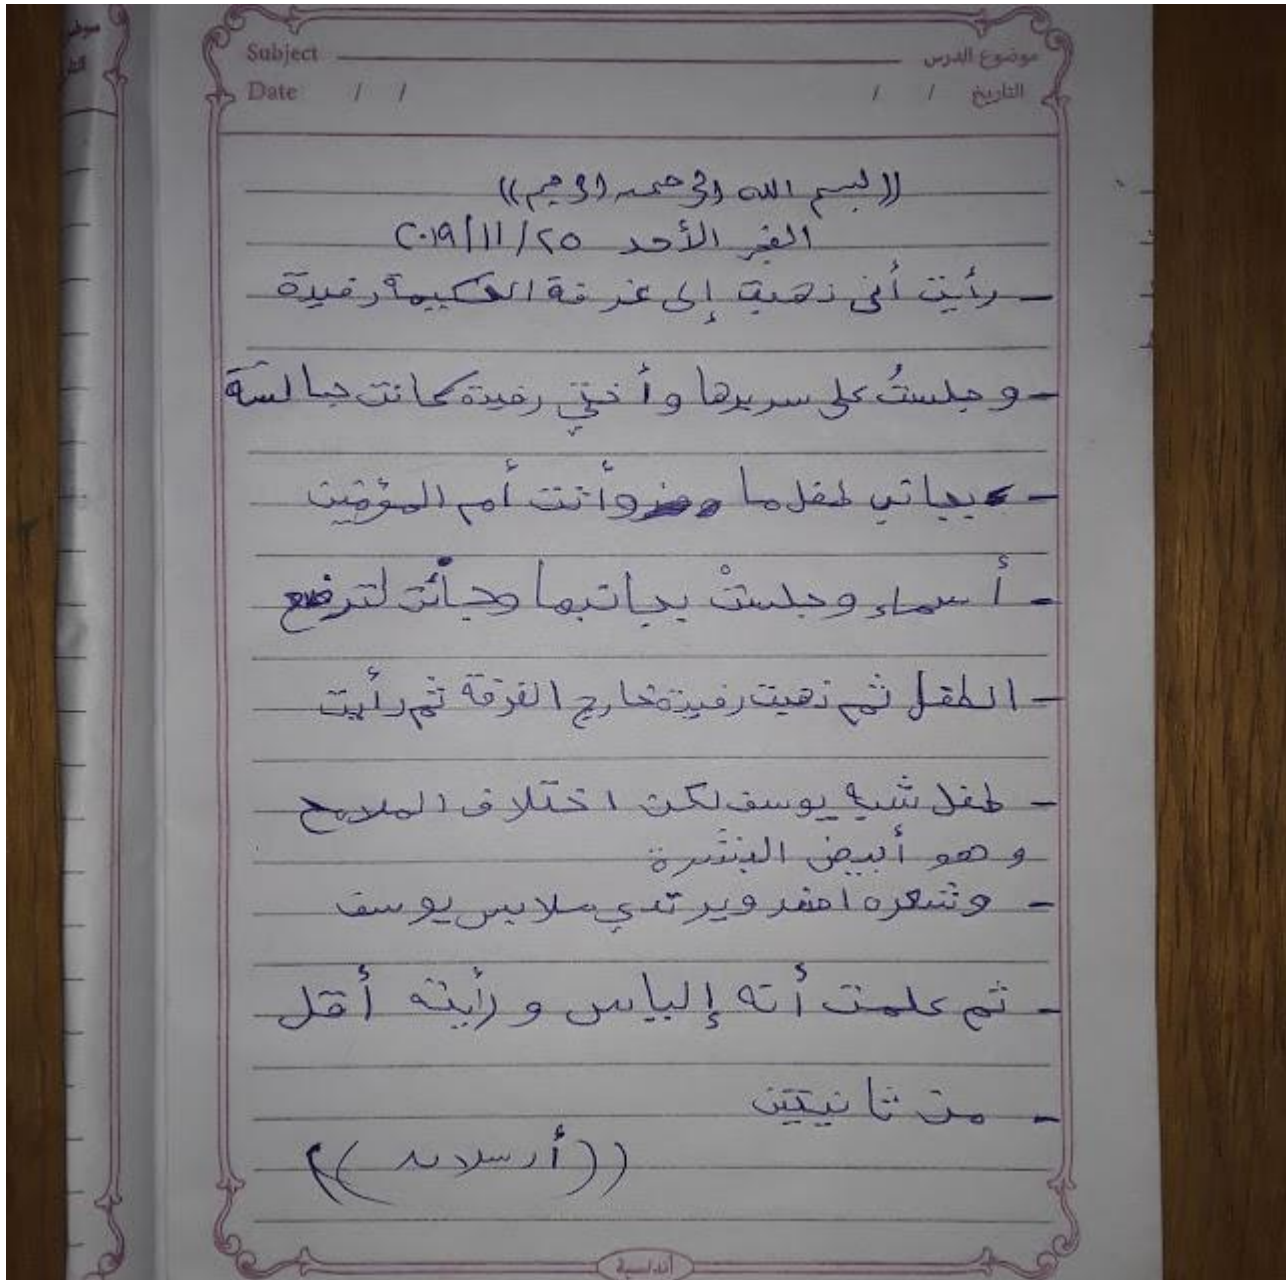 Subject موضوع الدرس
Date / / / / التاريخ
((بسم الله الرحمن الرحيم))
الفجر الأحد ٢٥/١١/٢٠١٩
- رأيت أني ذهبت إلى غرفة الحكيمة رفيدة
- وجلستُ على سريرها وأختي رفيدة كانت جالسة
- بجانبي طفلها وأتت أم المؤمنين
- أسماء وجلستْ بجانبها وجائت لترضع
- الطفل ثم ذهبت رفيدة خارج الغرفة ثم رأيت
- طفل شبه يوسف لكن اختلاف الملامح
وهو أبيض البشرة
- وشعره اصفر ويرتدي ملابس يوسف
- ثم علمت أنه إلياس ورأيته أقل
- من ثانيتين
((أرسلان))
أندلسية